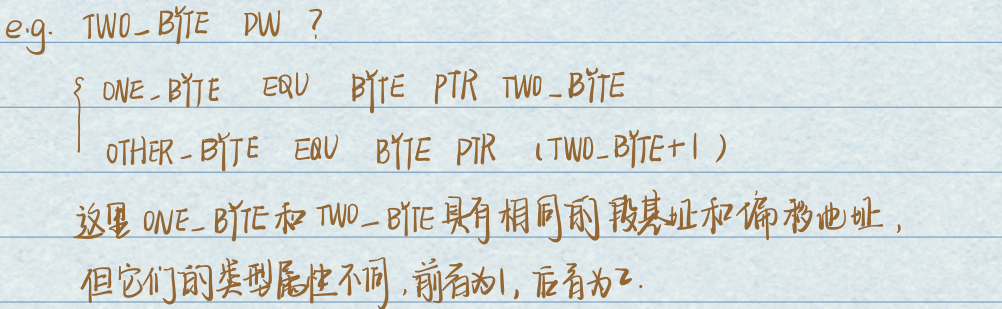 e.g. TWO_BYTE DW ?
ONE_BYTE EQU BYTE PTR TWO_BYTE
OTHER_BYTE EQU BYTE PTR (TWO_BYTE+1)
这里 ONE_BYTE 和 TWO_BYTE 具有相同的段基址和偏移地址,
但它们的类型属性不同,前者为1,后者为2.